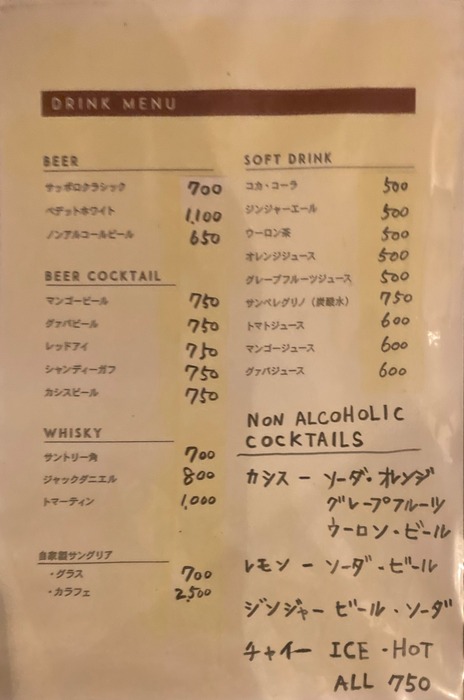 DRINK MENU
BEER
サッポロクラシック 700
ベデットホワイト 1,100
ノンアルコールビール 650
BEER COCKTAIL
マンゴービール 750
グァバビール 750
レッドアイ 750
シャンディーガフ 750
カシスビール 750
WHISKY
サントリー角 700
ジャックダニエル 800
トマーティン 1,000
自家製サングリア
・グラス 700
・カラフェ 2,500
SOFT DRINK
コカ・コーラ 500
ジンジャーエール 500
ウーロン茶 500
オレンジジュース 500
グレープフルーツジュース 500
サンペレグリノ（炭酸水） 750
トマトジュース 600
マンゴージュース 600
グァバジュース 600
NON ALCOHOLIC
COCKTAILS
カシス ー ソーダ・オレンジ
グレープフルーツ
ウーロン・ビール
レモン ー ソーダ・ビール
ジンジャー ビール・ソーダ
チャイー ICE・HOT
ALL 750